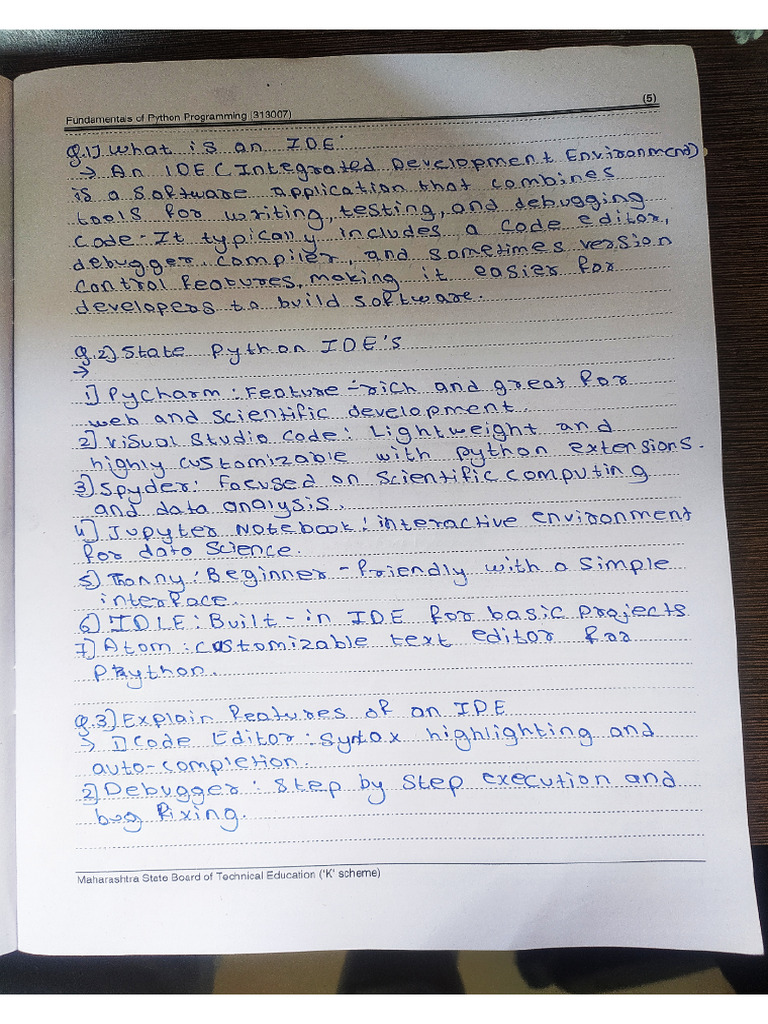 (5)
Fundamentals of Python Programming (313007)
Q.1) What is an IDE.
→ An IDE (Integrated Development Environment)
is a software application that combines
tools for writing, testing, and debugging
code. It typically includes a code editor,
debugger, compiler, and sometimes version
control features, making it easier for
developers to build software.
Q.2) State Python IDE's
→
1] PyCharm : Feature-rich and great for
web and scientific development.
2] Visual Studio Code : Lightweight and
highly customizable with python extensions.
3] Spyder : focused on scientific computing
and data analysis.
4] Jupyter Notebook : interactive environment
for data science.
5] Thonny : Beginner-friendly with a simple
interface.
6] IDLE : Built-in IDE for basic projects
7] Atom : customizable text editor for
Python.
Q.3) Explain features of an IDE
→ 1] Code Editor : Syntax highlighting and
auto-completion.
2] Debugger : Step by Step execution and
bug fixing.
Maharashtra State Board of Technical Education ('K' scheme)